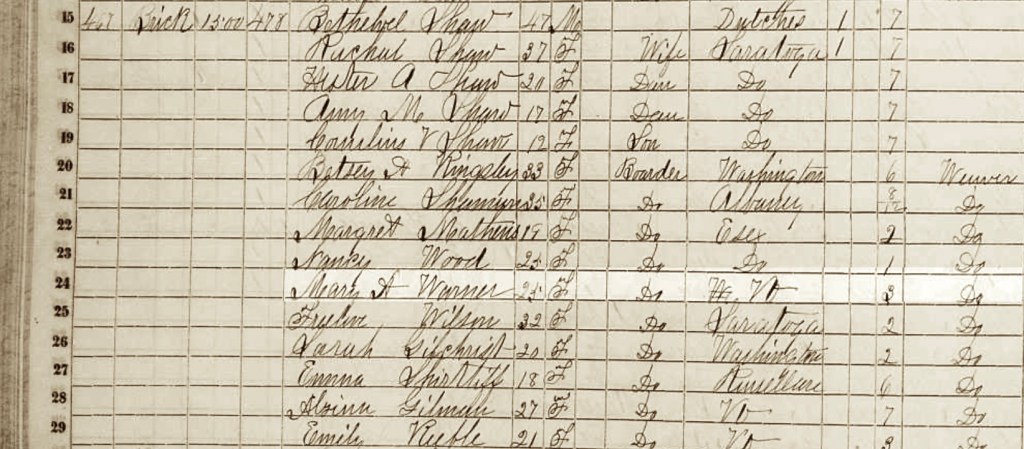 15 467 Brick 1500 478 Bethebel Shaw 47 M Dutches 1 7
16 Rachel Shaw 37 F Wife Saratoga 1 7
17 Hester A Shaw 20 F Dau Do 7
18 Amy M Shaw 17 F Dau Do 7
19 Cornelius V Shaw 12 F Son Do 7
20 Betsey A Kingsley 33 F Boarder Washington 6 Weaver
21 Caroline 25 F Do Albany 8/12 Do
22 Margret Mathews 19 F Do Esex 2 Do
23 Nancy Wood 25 F Do Do 1 Do
24 Mary A Warner 25 F Do Vt 3 Do
25 Wilson 32 F Do Saratoga 2 Do
26 Sarah Gilchrist 20 F Do Washington 2 Do
27 Emma Shirtliff 18 F Do 6 Do
28 Alvina Gilman 27 F Do Vt 7 Do
29 Emily Keeble 21 F Do Vt 3 Do